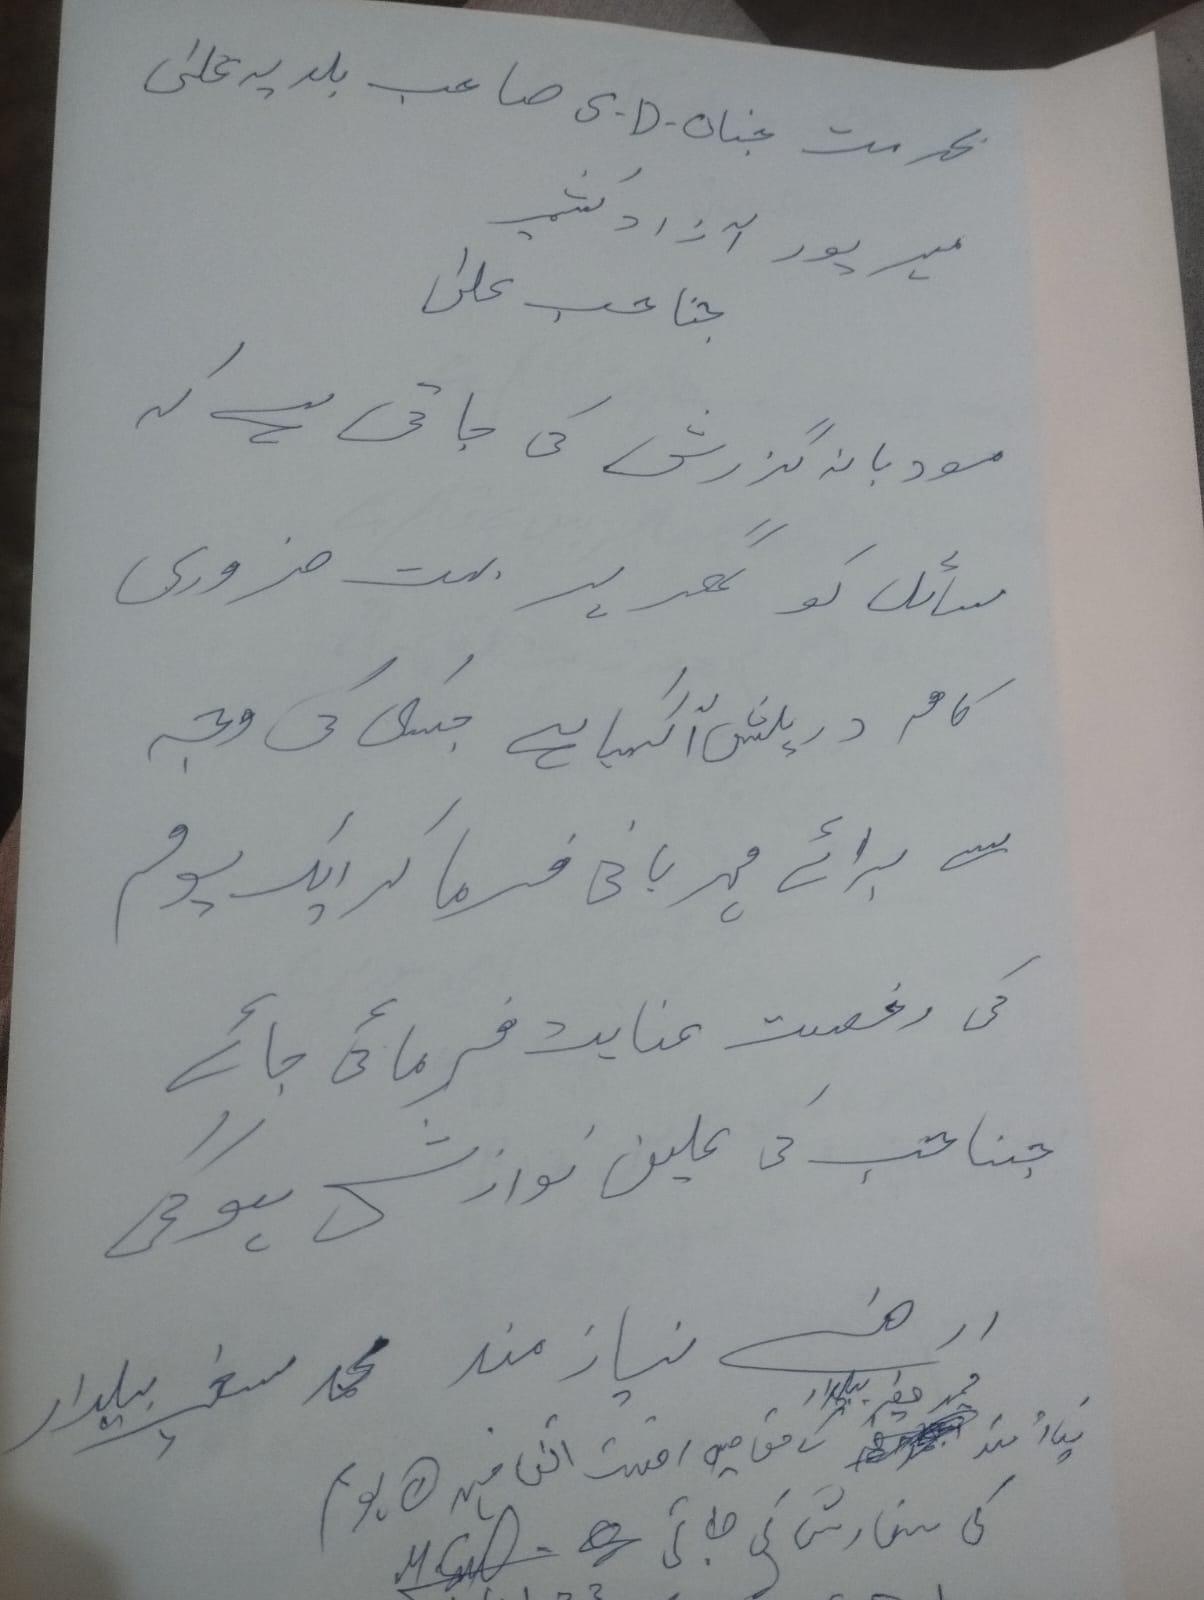 بخدمت جناب S-D-O صاحب بلدیہ علیٰ
میر پور آزاد کشمیر
جناحب علیٰ
مودبانہ گزرش کی جاتی ہے کہ
سائل کو گھر پر بہت ضروری
کام درپیش آ گیا ہے جسکی کی وجہ
سے برائے مہربانی فرما کر ایک یوم
کی رخصت عنایت فرمائی جائے
جناحب کی عین نوازش ہوگی
ارضے نیاز مند محمد سفیر بیلدار
بیلدار
نیازمند کے حق میں
کی سفارش کی جاتی ہے